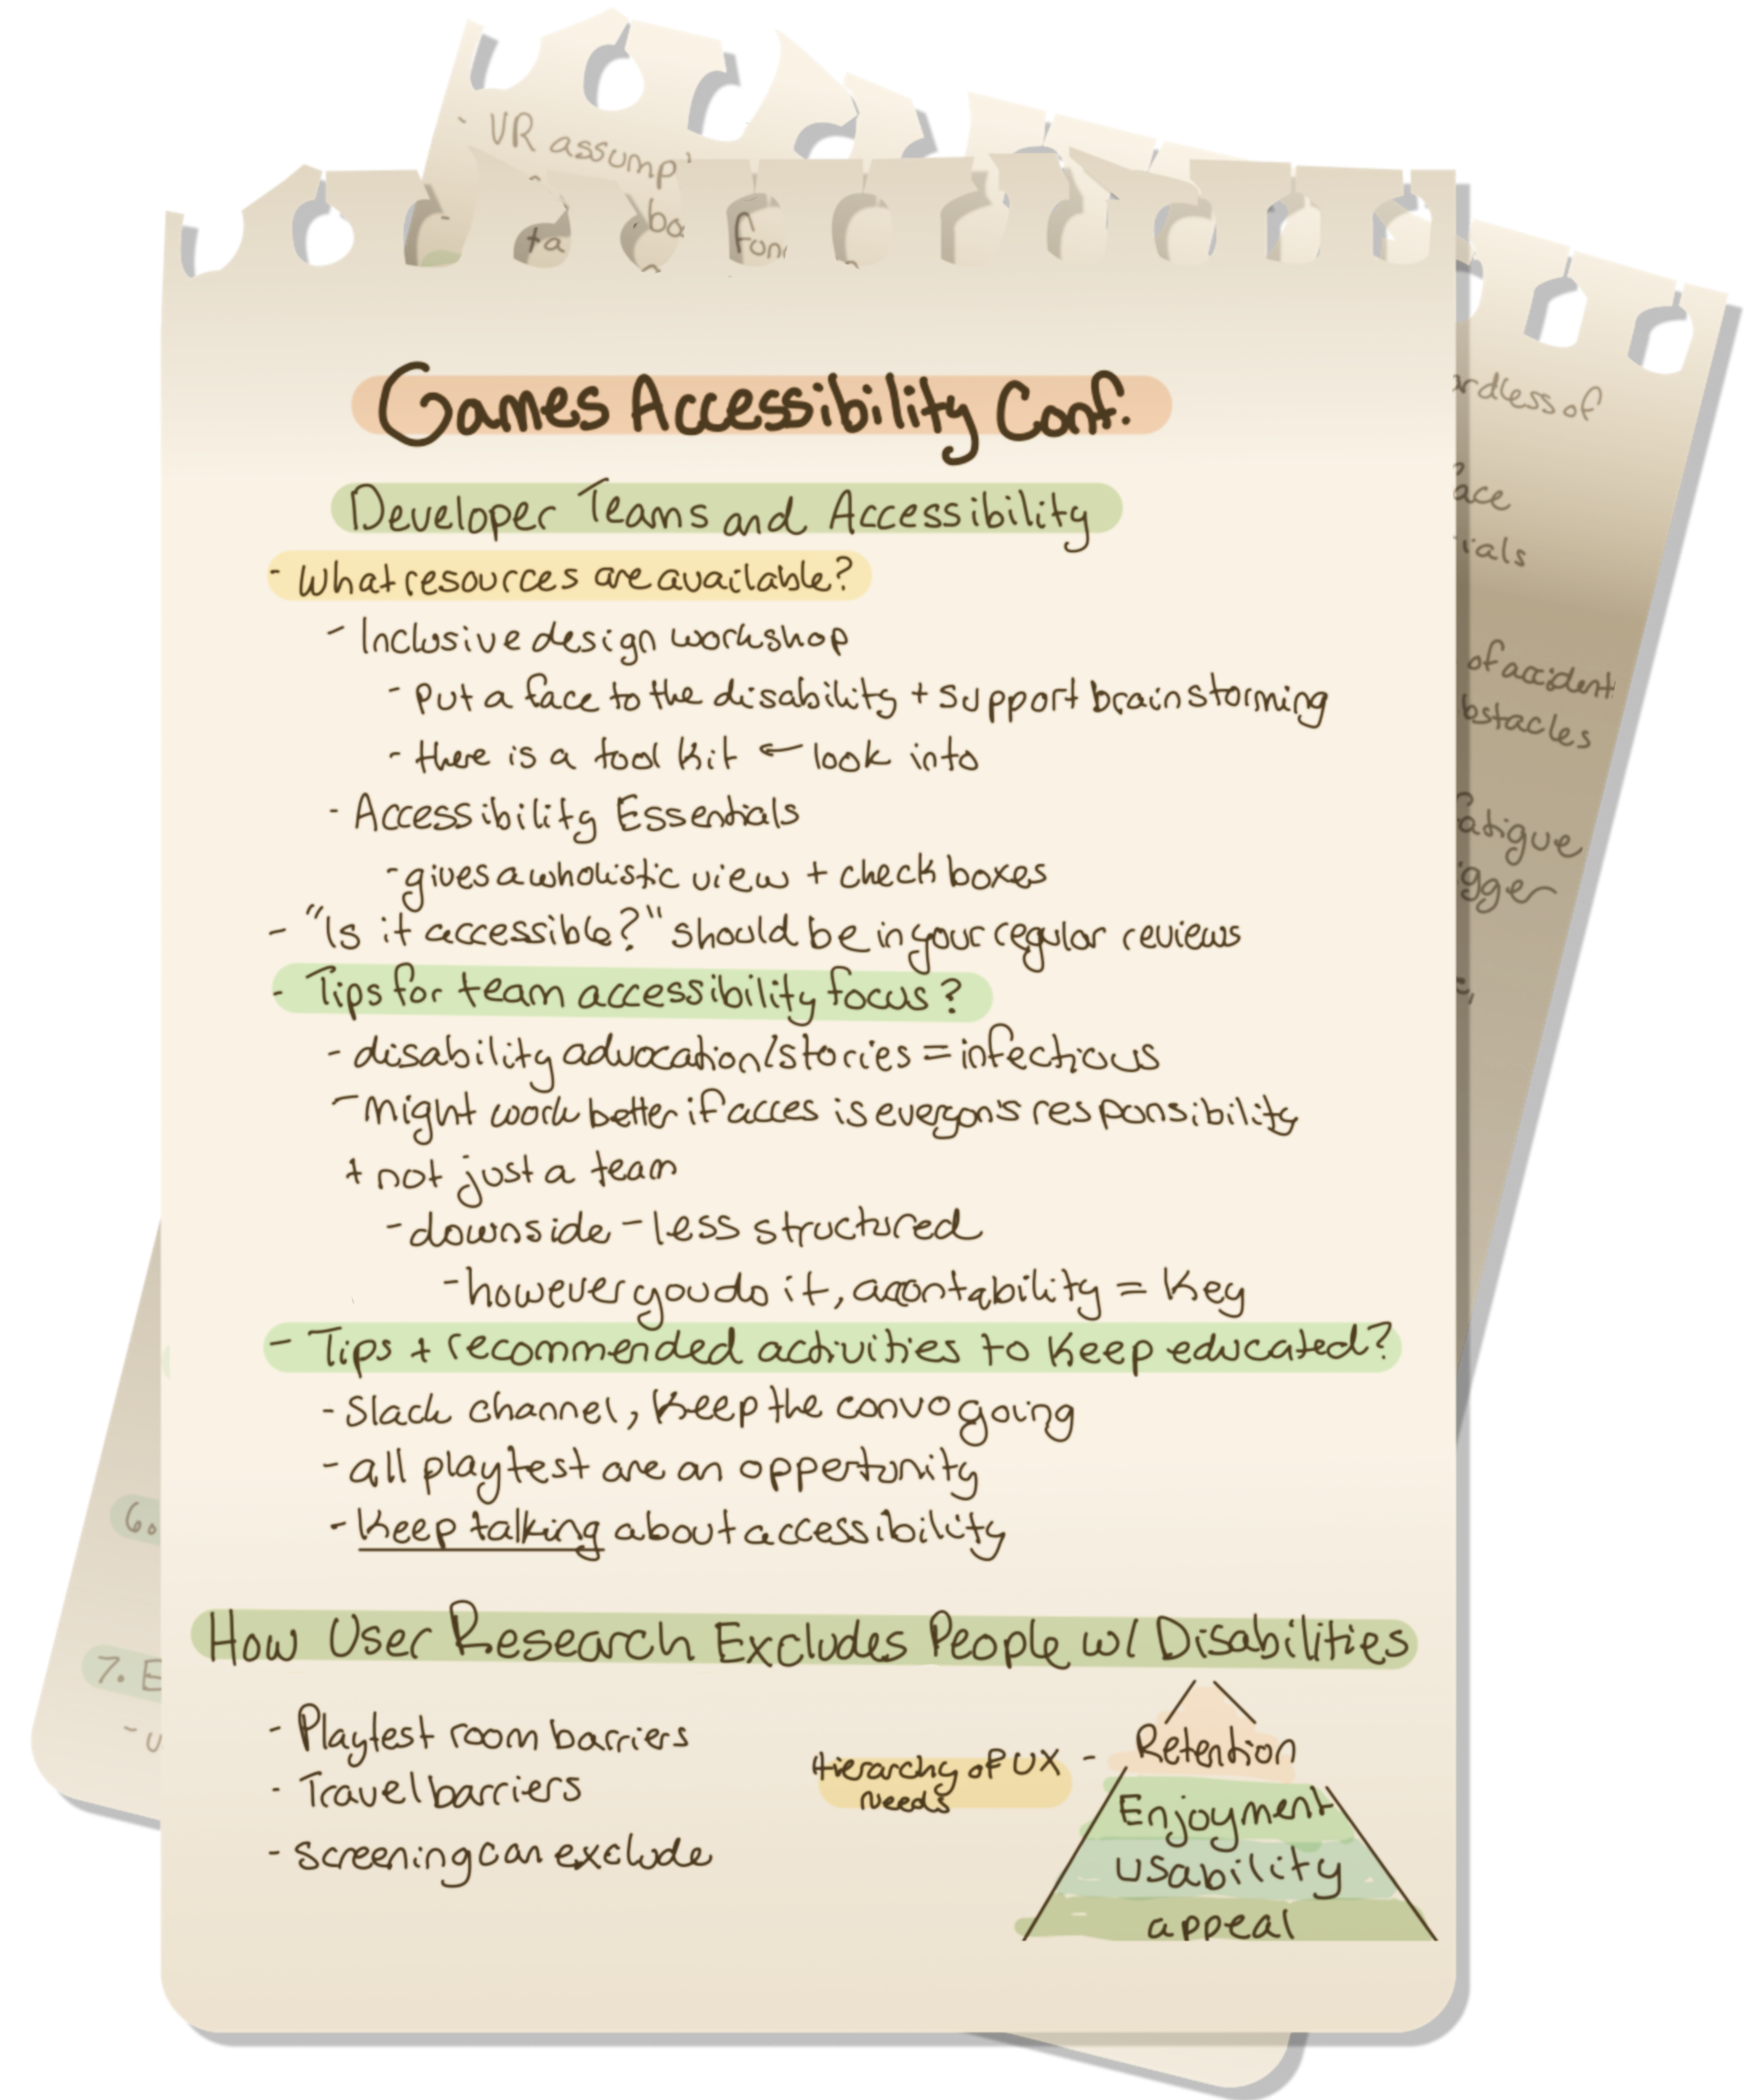 - VR assump
ta
ba
fon
Games Accessibility Conf.
Developer Teams and Accessibility
- What resources are available?
- Inclusive design workshop
- Put a face to the disability + support brainstorming
- there is a tool kit ← look into
- Accessibility Essentials
- gives a wholistic view + check boxes
- "Is it accessible?" should be in your regular reviews
- Tips for team accessibility focus?
- disability advocation/stories = infectious
- might work better if acces is everyon's responsibility
+ not just a team
- downside - less structured
- however you do it, accontability = key
- Tips + recommended activities to keep educated?
- Slack channel, keep the convo going
- all playtest are an oppertunity
- keep talking about accessibility
How User Research Excludes People w/ Disabilities
- Playtest room barriers
- Travel barriers
- screening can exclude
Hierarchy of UX -
needs
Retention
Enjoyment
usability
appeal
ardless of
face
rials
of accident
bstacles
fatigue
igger
6.
7. E
- u